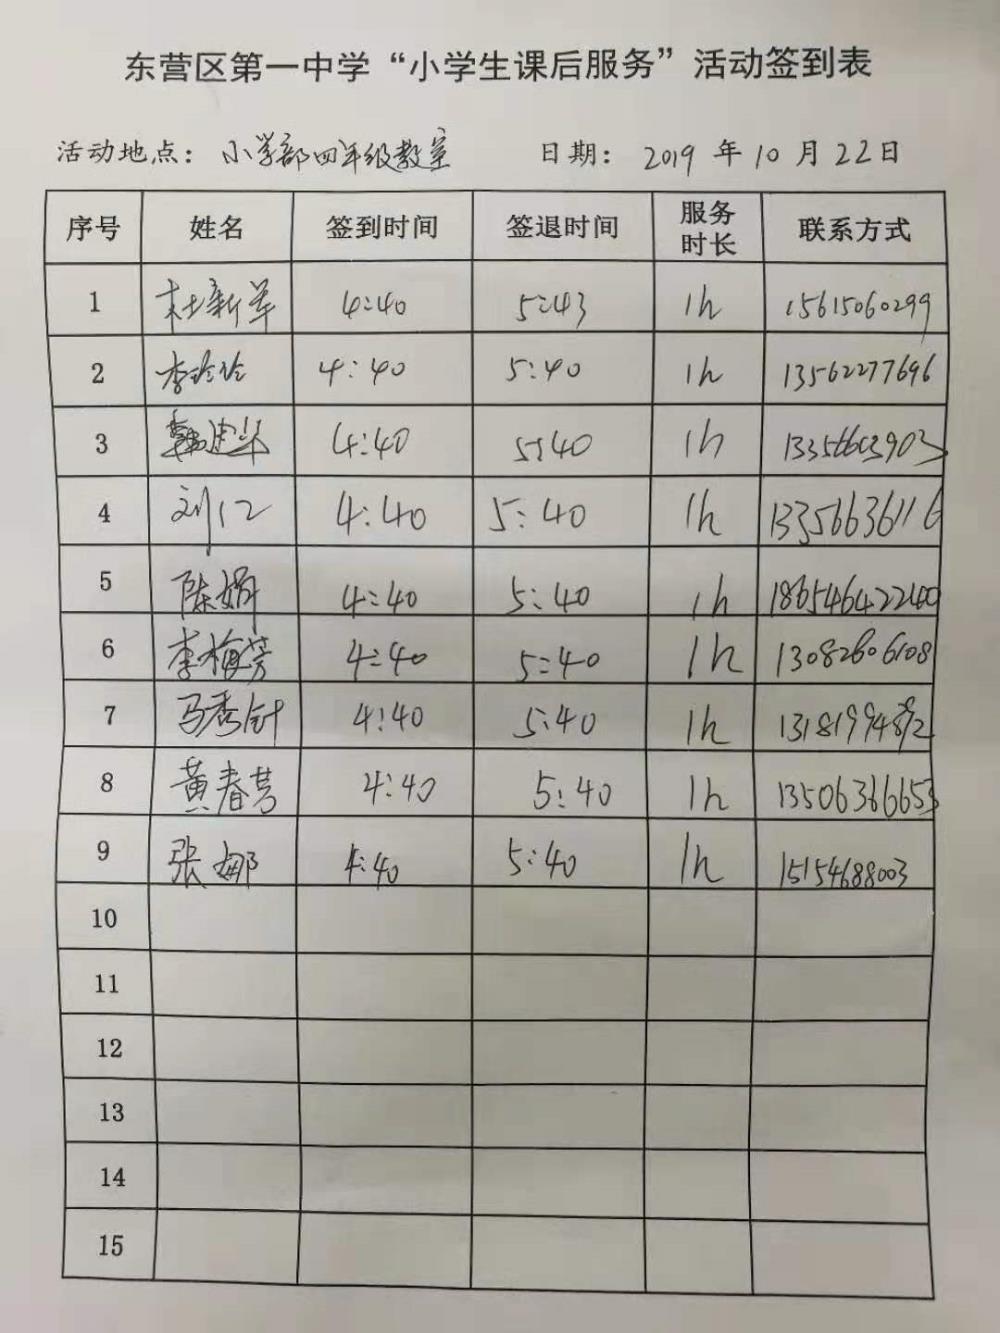 东营区第一中学“小学生课后服务”活动签到表
活动地点：小学部四年级教室 日期：2019年10月22日
序号 姓名 签到时间 签退时间 服务时长 联系方式
1 杜新军 4:40 5:43 1h 15615060299
2 李玲玲 4:40 5:40 1h 13562277696
3 韩建华 4:40 5:40 1h
4 刘仁 4:40 5:40 1h 13356636116
5 陈娟 4:40 5:40 1h 18654642240
6 李梅芳 4:40 5:40 1h 13082606108
7 马秀针 4:40 5:40 1h
8 黄春芳 4:40 5:40 1h 13506366653
9 张娜 4:40 5:40 1h 15154688003
10
11
12
13
14
15